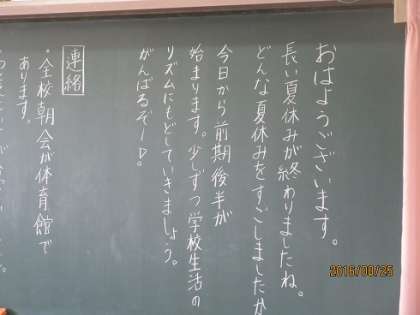 おはようございます。
長い夏休みが終わりましたね。
どんな夏休みをすごしましたか
今日から前期後半が
始まります。少しずつ学校生活の
リズムにもどしていきましょう。
がんばるぞーD。
連絡
・全校朝会が体育館で
あります。
2016/08/25